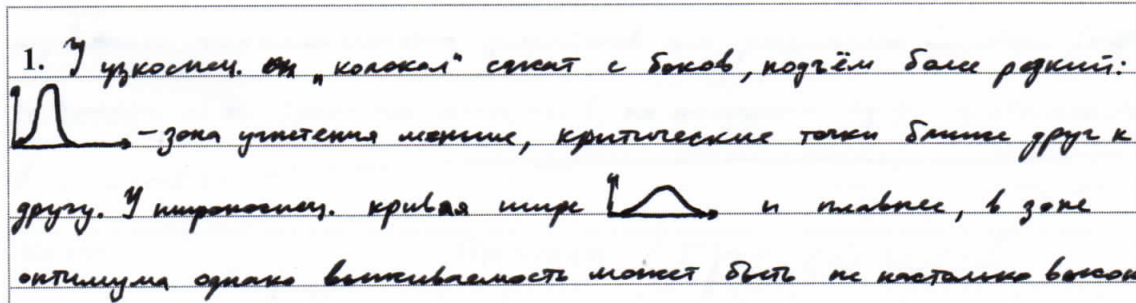 1. У узкоспец. "колокол" сжат с боков, подъём более редкий:
– зона угнетения меньше, критические точки ближе друг к
другу. У широкоспец. кривая шире и плавнее, в зоне
оптимума однако выживаемость может быть не настолько высок